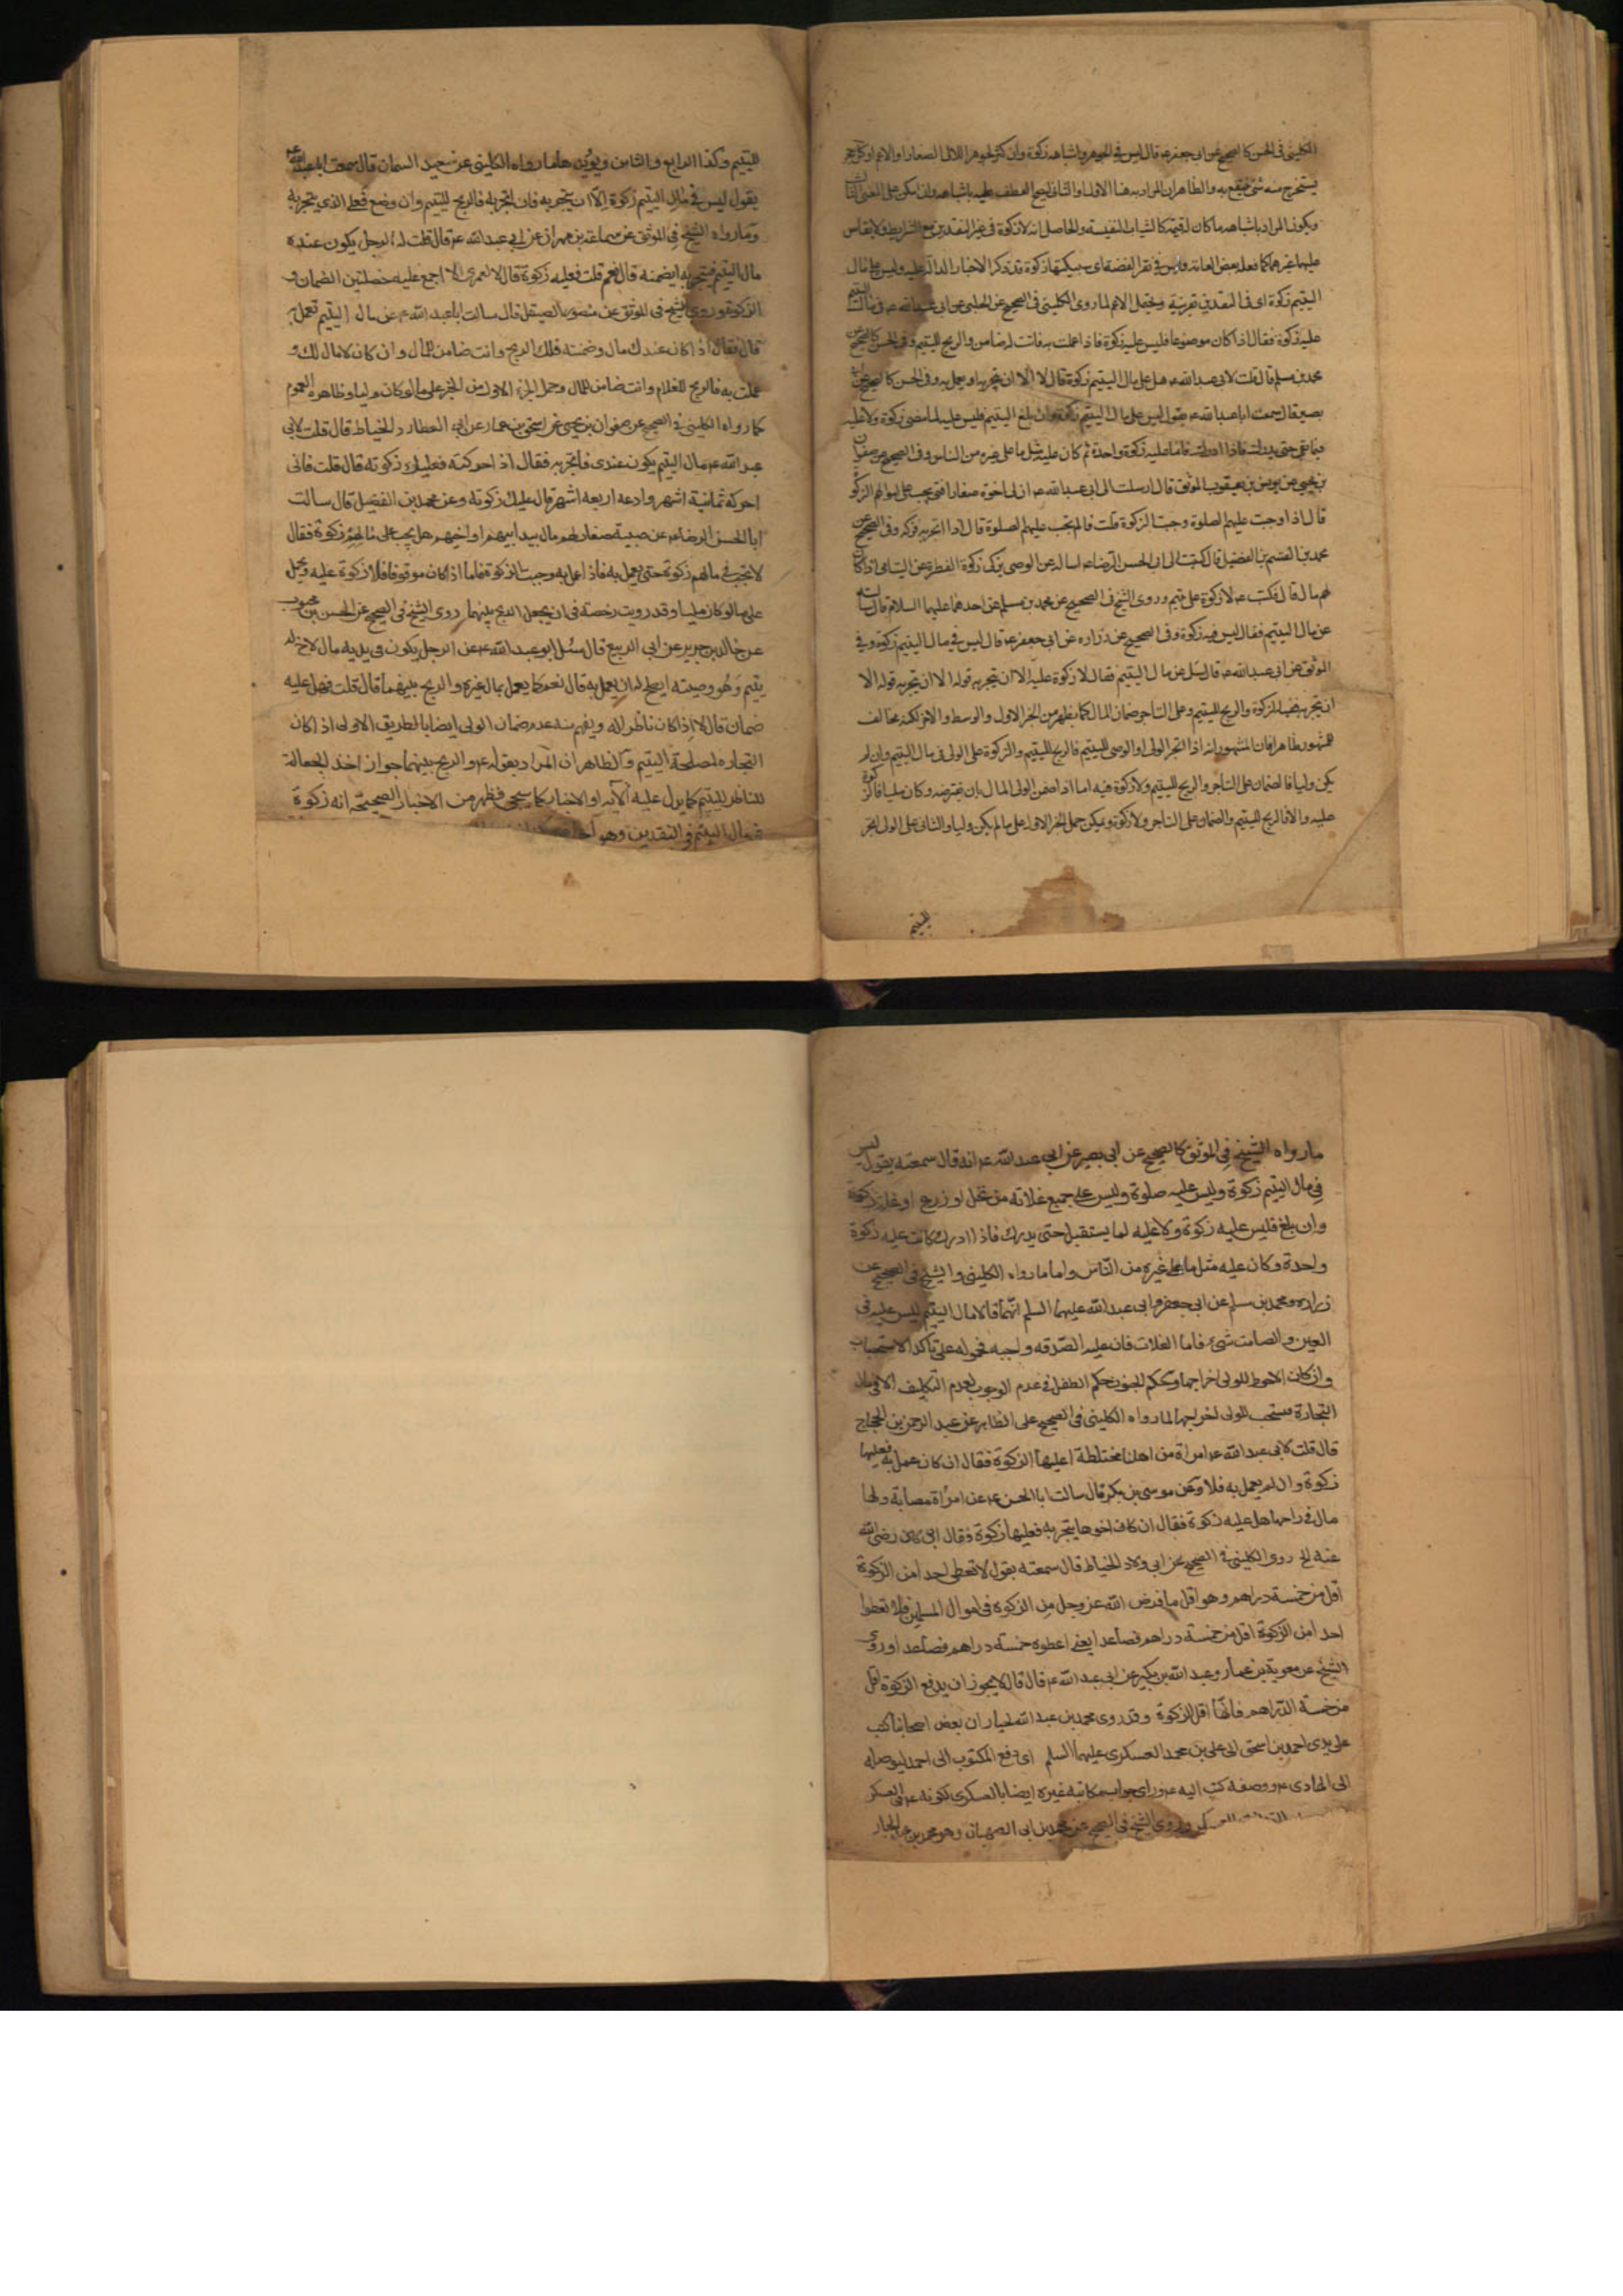 الكليني في الحسن كالصحيح عن ابي جعفر ع قال ليس في الجوهر واشباهه زكوة وان كثر الجوهر اللالي الصغار او الاعم او كل حجر
يستخرج منه شئ ينتفع به والظاهران المراد به هنا الاول او الثاني ليصح العطف عليه باشباهه وان امكن على المعنى الثالث
ويكون المراد باشباهه ما كان له قيمة كالثياب النفيسة والحاصل انه لا زكوة في غير النقدين مع الشرايط ولا يقاس
عليهما غيرهما كما فعله بعض العامة وليس في نقر الفضة اى سبيكتها زكوة قد تذكر الاخبار الدالة عليه وليس على مال
اليتيم زكوة اى في النقدين بقرينة ويحتمل الاعم لما روى الكليني في الصحيح عن الحلبي عن ابي عبد الله ع في مال اليتيم
عليه زكوة فقال اذا كان موضوعا فليس عليه زكوة فاذا عملت به فانت له ضامن والربح لليتيم وفي الحسن كالصحيح عن
محمد بن مسلم قال قلت لابي عبد الله ع هل على مال اليتيم زكوة قال لا الا ان يتجر به او يعمل به وفي الحسن كالصحيح عن ابي
بصير قال سمعت ابا عبد الله ع يقول ليس على مال اليتيم زكوة وان بلغ اليتيم فليس عليه لما مضى زكوة ولا عليه
فيما بقى حتى يدرك فاذا ادرك فانما عليه زكوة واحدة ثم كان عليه مثل ما على غيره من الناس وفي الصحيح عن صفوان
بن يحيى عن يونس بن يعقوب الموثق قال ارسلت الى ابي عبد الله ع ان لى اخوة صغارا فمتى يجب على اموالهم الزكوة
قال اذا وجبت عليهم الصلوة وجبت الزكوة قلت فما لم تجب عليهم الصلوة قال اذا اتجر به فزكه وفي الصحيح عن
محمد بن القسم بن الفضيل قال كتبت الى ابي الحسن الرضا ع اساله عن الوصى يزكى زكوة الفطرة عن اليتامى اذا كان
لهم مال قال فكتب ع لا زكوة على يتيم وروى الشيخ في الصحيح عن محمد بن مسلم عن احدهما عليهما السلام قال سالته
عن مال اليتيم فقال ليس فيه زكوة وفي الصحيح عن زرارة عن ابي جعفر ع قال ليس في مال اليتيم زكوة وفي
الموثق عن ابي عبد الله ع قال سئل عن مال اليتيم فقال لا زكوة عليه الا ان يتجر به قوله الا ان يتجر به قوله الا
ان يتجر به ففيه الزكوة والربح لليتيم وعلى التاجر ضمان المال كما يظهر من الخبر الاول والوسط والاخر لكنه مخالف
للمشهور ظاهرا فان المشهور انه اذا اتجر الولى او الوصى لليتيم فالربح لليتيم والزكوة على الولى في مال اليتيم وان لم
يكن وليا فالضمان على التاجر والربح لليتيم ولا زكوة فيه اما اذا ضمن الولى المال بان يقترضه وكان مليا فالزكوة
عليه والا فالربح لليتيم والضمان على التاجر ولا زكوة ويمكن حمل الخبر الاول على ما لم يكن وليا والثاني على الولى الخبر
لليتيم
لليتيم وكذا الرابع والثامن ويؤيدهما ما رواه الكليني عن سعيد السمان قال سمعت ابا عبد الله ع
يقول ليس في مال اليتيم زكوة الا ان يتجر به فان اتجر به فالربح لليتيم وان وضع فعلى الذي يتجر به
وما رواه الشيخ في الموثق عن سماعة بن مهران عن ابي عبد الله ع قال قلت له الرجل يكون عنده
مال اليتيم فيتجر به ايضمنه قال نعم قلت فعليه زكوة قال لا لعمرى لا اجمع عليه خصلتين الضمان و
الزكوة وروى الشيخ في الموثق عن منصور الصيقل قال سالت ابا عبد الله ع عن مال اليتيم يعمل به
قال فقال اذا كان عندك مال وضمنته فلك الربح وانت ضامن المال وان كان لا مال لك و
عملت به فالربح للغلام وانت ضامن للمال وحمل الجزء الاول من الخبر على ما لو كان وليا وظاهره العموم
كما رواه الكليني في الصحيح عن صفوان بن يحيى عن اسحق بن عمار عن ابي العطارد الخياط قال قلت لابي
عبد الله ع مال اليتيم يكون عندى فاتجر به فقال اذا حركته فعليك زكوته قال قلت فانى
احركه ثمانية اشهر وادعه اربعة اشهر قال عليك زكوته وعن محمد بن الفضيل قال سالت
ابا الحسن الرضا ع عن صبية صغار لهم مال بيد ابيهم او اخيهم هل يجب على مالهم زكوة فقال
لا تجب في مالهم زكوة حتى يعمل به فاذا عمل به وجبت الزكوة فاما اذا كان موقوفا فلا زكوة عليه ويحمل
على ما لو كان مليا وقد رويت رخصة في ان يجعل الربح بينهما روى الشيخ في الصحيح عن الحسن بن محبوب
عن خالد بن جرير عن ابي الربيع قال سئل ابو عبد الله ع عن الرجل يكون في يديه مال لاخ له
يتيم وهو وصيته ايصلح له ان يعمل به قال نعم كما يعمل بمال غيره والربح بينهما قال قلت فهل عليه
ضمان قال لا اذا كان ناظرا له ويفهم منه عدم ضمان الولى ايضا بالطريق الاولى اذا كان
التجارة لمصلحة اليتيم والظاهر ان المراد بقوله ع والربح بينهما جواز اخذ الجعالة
للناظر لليتيم كما يدل عليه الآية او الاخبار كما سيجئ فظهر من الاخبار الصحيحة انه زكوة
في مال اليتيم في النقدين وهو
ما رواه الشيخ في الموثق كالصحيح عن ابي بصير عن ابي عبد الله ع انه قال سمعته يقول ليس
في مال اليتيم زكوة وليس عليه صلوة وليس على جميع غلاته من نخل او زرع او غلة زكوة
وان بلغ فليس عليه زكوة ولا عليه لما يستقبل حتى يدرك فاذا ادرك كانت عليه زكوة
واحدة وكان عليه مثل ما على غيره من الناس واما ما رواه الكليني والشيخ في الصحيح عن
زرارة ومحمد بن مسلم عن ابي جعفر وابي عبد الله عليهما السلم انهما قالا مال اليتيم ليس عليه في
العين والصامت شئ فاما الغلات فان عليه الصدقة واجبة فمحوله على تاكد الاستحباب
وان كان الاحوط للولى اخراجها وحكم المجنون حكم الطفل في عدم الوجوب لعدم التكليف الا في مال
التجارة فيستحب للولى اخراجها لما رواه الكليني في الصحيح على الظاهر عن عبد الرحمن بن الحجاج
قال قلت لابي عبد الله ع امراة من اهلنا مختلطة اعليها الزكوة فقال ان كان عمل به فعليها
زكوة وان لم يعمل به فلا وعن موسى بن بكر قال سالت ابا الحسن ع عن امراة مصابة ولها
مال في يد اخيها هل عليه زكوة فقال ان كان اخوها يتجر به فعليها زكوة وقال ابي رضي الله
عنه الخ روى الكليني في الصحيح عن ابي ولاد الخياط قال سمعته يقول لا تعطى احد امن الزكوة
اقل من خمسة دراهم وهو اقل ما فرض الله عز وجل من الزكوة في اموال المسلمين فلا تعطوا
احدا من الزكوة اقل من خمسة دراهم فصاعدا يعنى اعطوه خمسة دراهم فصاعدا وروى
الشيخ عن معوية بن عمار وعبد الله بن بكير عن ابي عبد الله ع قال قال لا يجوز ان يدفع الزكوة اقل
من خمسة الدراهم فانها اقل الزكوة وقد روى محمد بن عبد الجبار ان بعض اصحابنا كتب
على يدى احمد بن اسحق الى على بن محمد العسكرى عليهما السلم اى دفع المكتوب الى احمد ليوصله
الى الهادى ع ووصفه كتب اليه ع وراى جواب مكاتبة غيره ايضا بالعسكرى لكونه ع في العسكر
وروى الشيخ في الصحيح عن محمد بن ابي الصهبان وهو محمد بن عبد الجبار